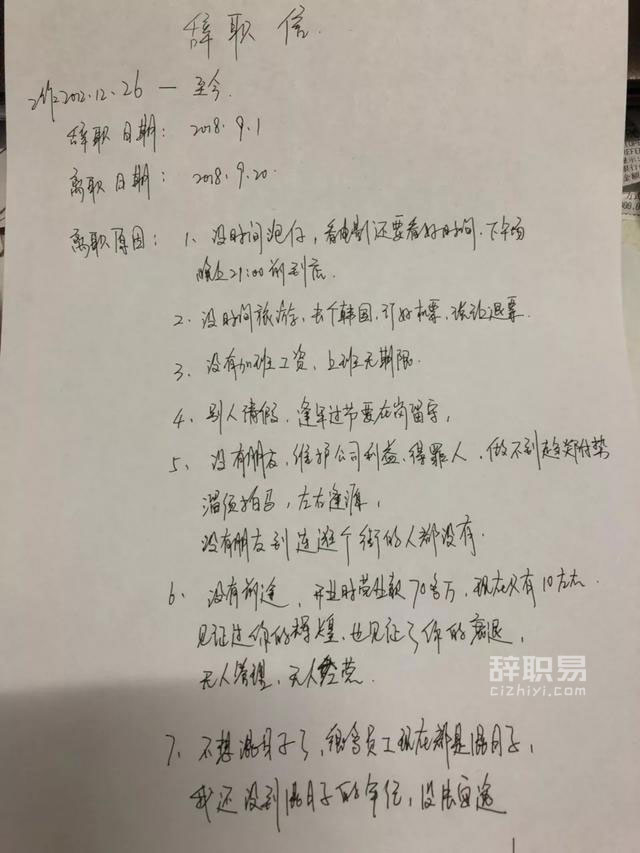 辞职信.
工作2012.12.26 — 至今.
辞职日期: 2018.9.1
离职日期: 2018.9.20.
离职原因: 1、没时间泡仔,看电影还要看好时间.下午场
晚上21:00前到店.
2、没时间旅游,去个韩国,订好机票,被迫退票.
3、没有加班工资,上班无期限.
4、别人请假,逢年过节要在岗留守,
5、没有朋友,维护公司利益、得罪人、做不到趋炎附势
溜须拍马,左右逢源,
没有朋友到连逛个街的人都没有.
6、没有前途,开业时营业额70多万,现在只有10左右.
见证过你的辉煌、也见证了你的衰退,
无人管理、无人经营.
7、不想混日子了,很多员工现在都是混日子,
我还没到混日子的年纪,没法适
辞职易
cizhiyi.com